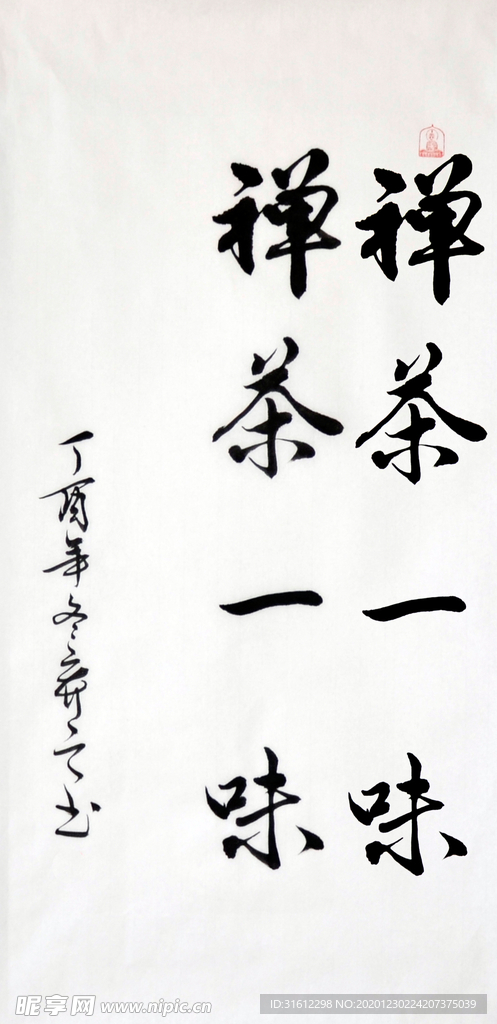 禅茶一味
禅茶一味
丁酉年冬
书
昵享网 www.nipic.cn
ID:31612298 NO:20201230224207375039